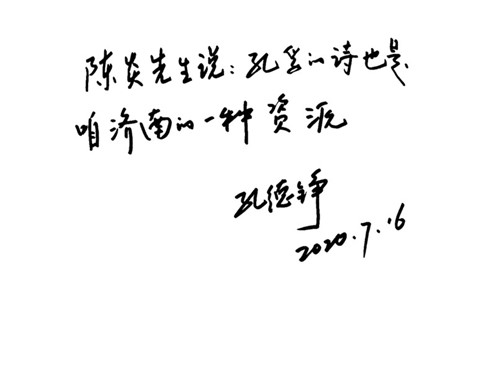 陈炎先生说：孔孚的诗也是
咱济南的一种资源
孔德铮
2020.7.16